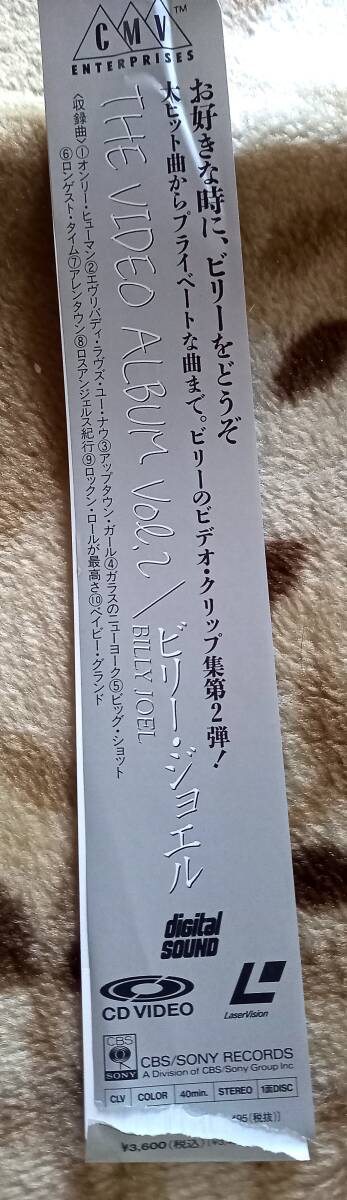 CMV™
ENTERPRISES
お好きな時に、ビリーをどうぞ
大ヒット曲からプライベートな曲まで。ビリーのビデオ・クリップ集第2弾!
THE VIDEO ALBUM Vol.2／ビリー・ジョエル
BILLY JOEL
〈収録曲〉①オンリー・ヒューマン②エヴリバディ・ラヴズ・ユー・ナウ③アップタウン・ガール④ガラスのニューヨーク⑤ビッグ・ショット
⑥ロンゲスト・タイム⑦アレンタウン⑧ロスアンジェルス紀行⑨ロックン・ロールが最高さ⑩ベイビー・グランド
digital
SOUND
CD VIDEO
LaserVision
CBS
SONY
CBS/SONY RECORDS
A Division of CBS/Sony Group Inc.
CLV COLOR 40min. STEREO 1面DISC
495(税抜)
¥3,600(税込)